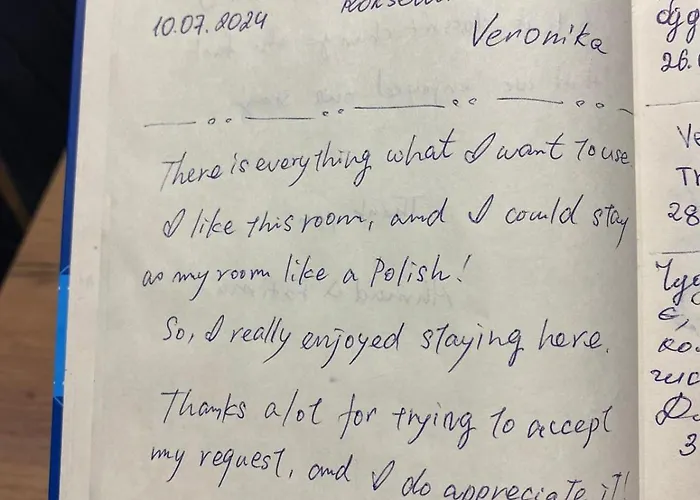 10.07.2024
Veronika
There is everything what I want to use
I like this room, and I could stay
as my room like a Polish!
So, I really enjoyed staying here.
Thanks a lot for trying to accept
my request, and I do appreciate it!
26.
Ve
28
3